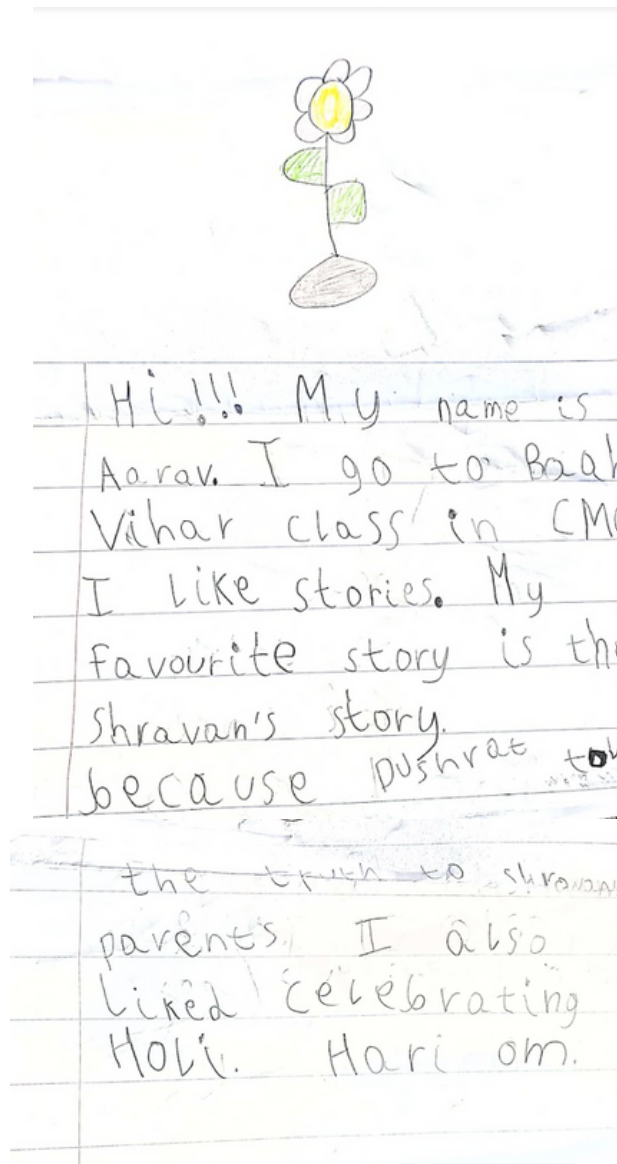 Hi!!! My name is
Aarav. I go to Baal
Vihar class in CM
I like stories. My
favourite story is
Shravan's story.
because pushrat
the truth to shravan
parents. I also
liked celebrating
Holi. Hari om.